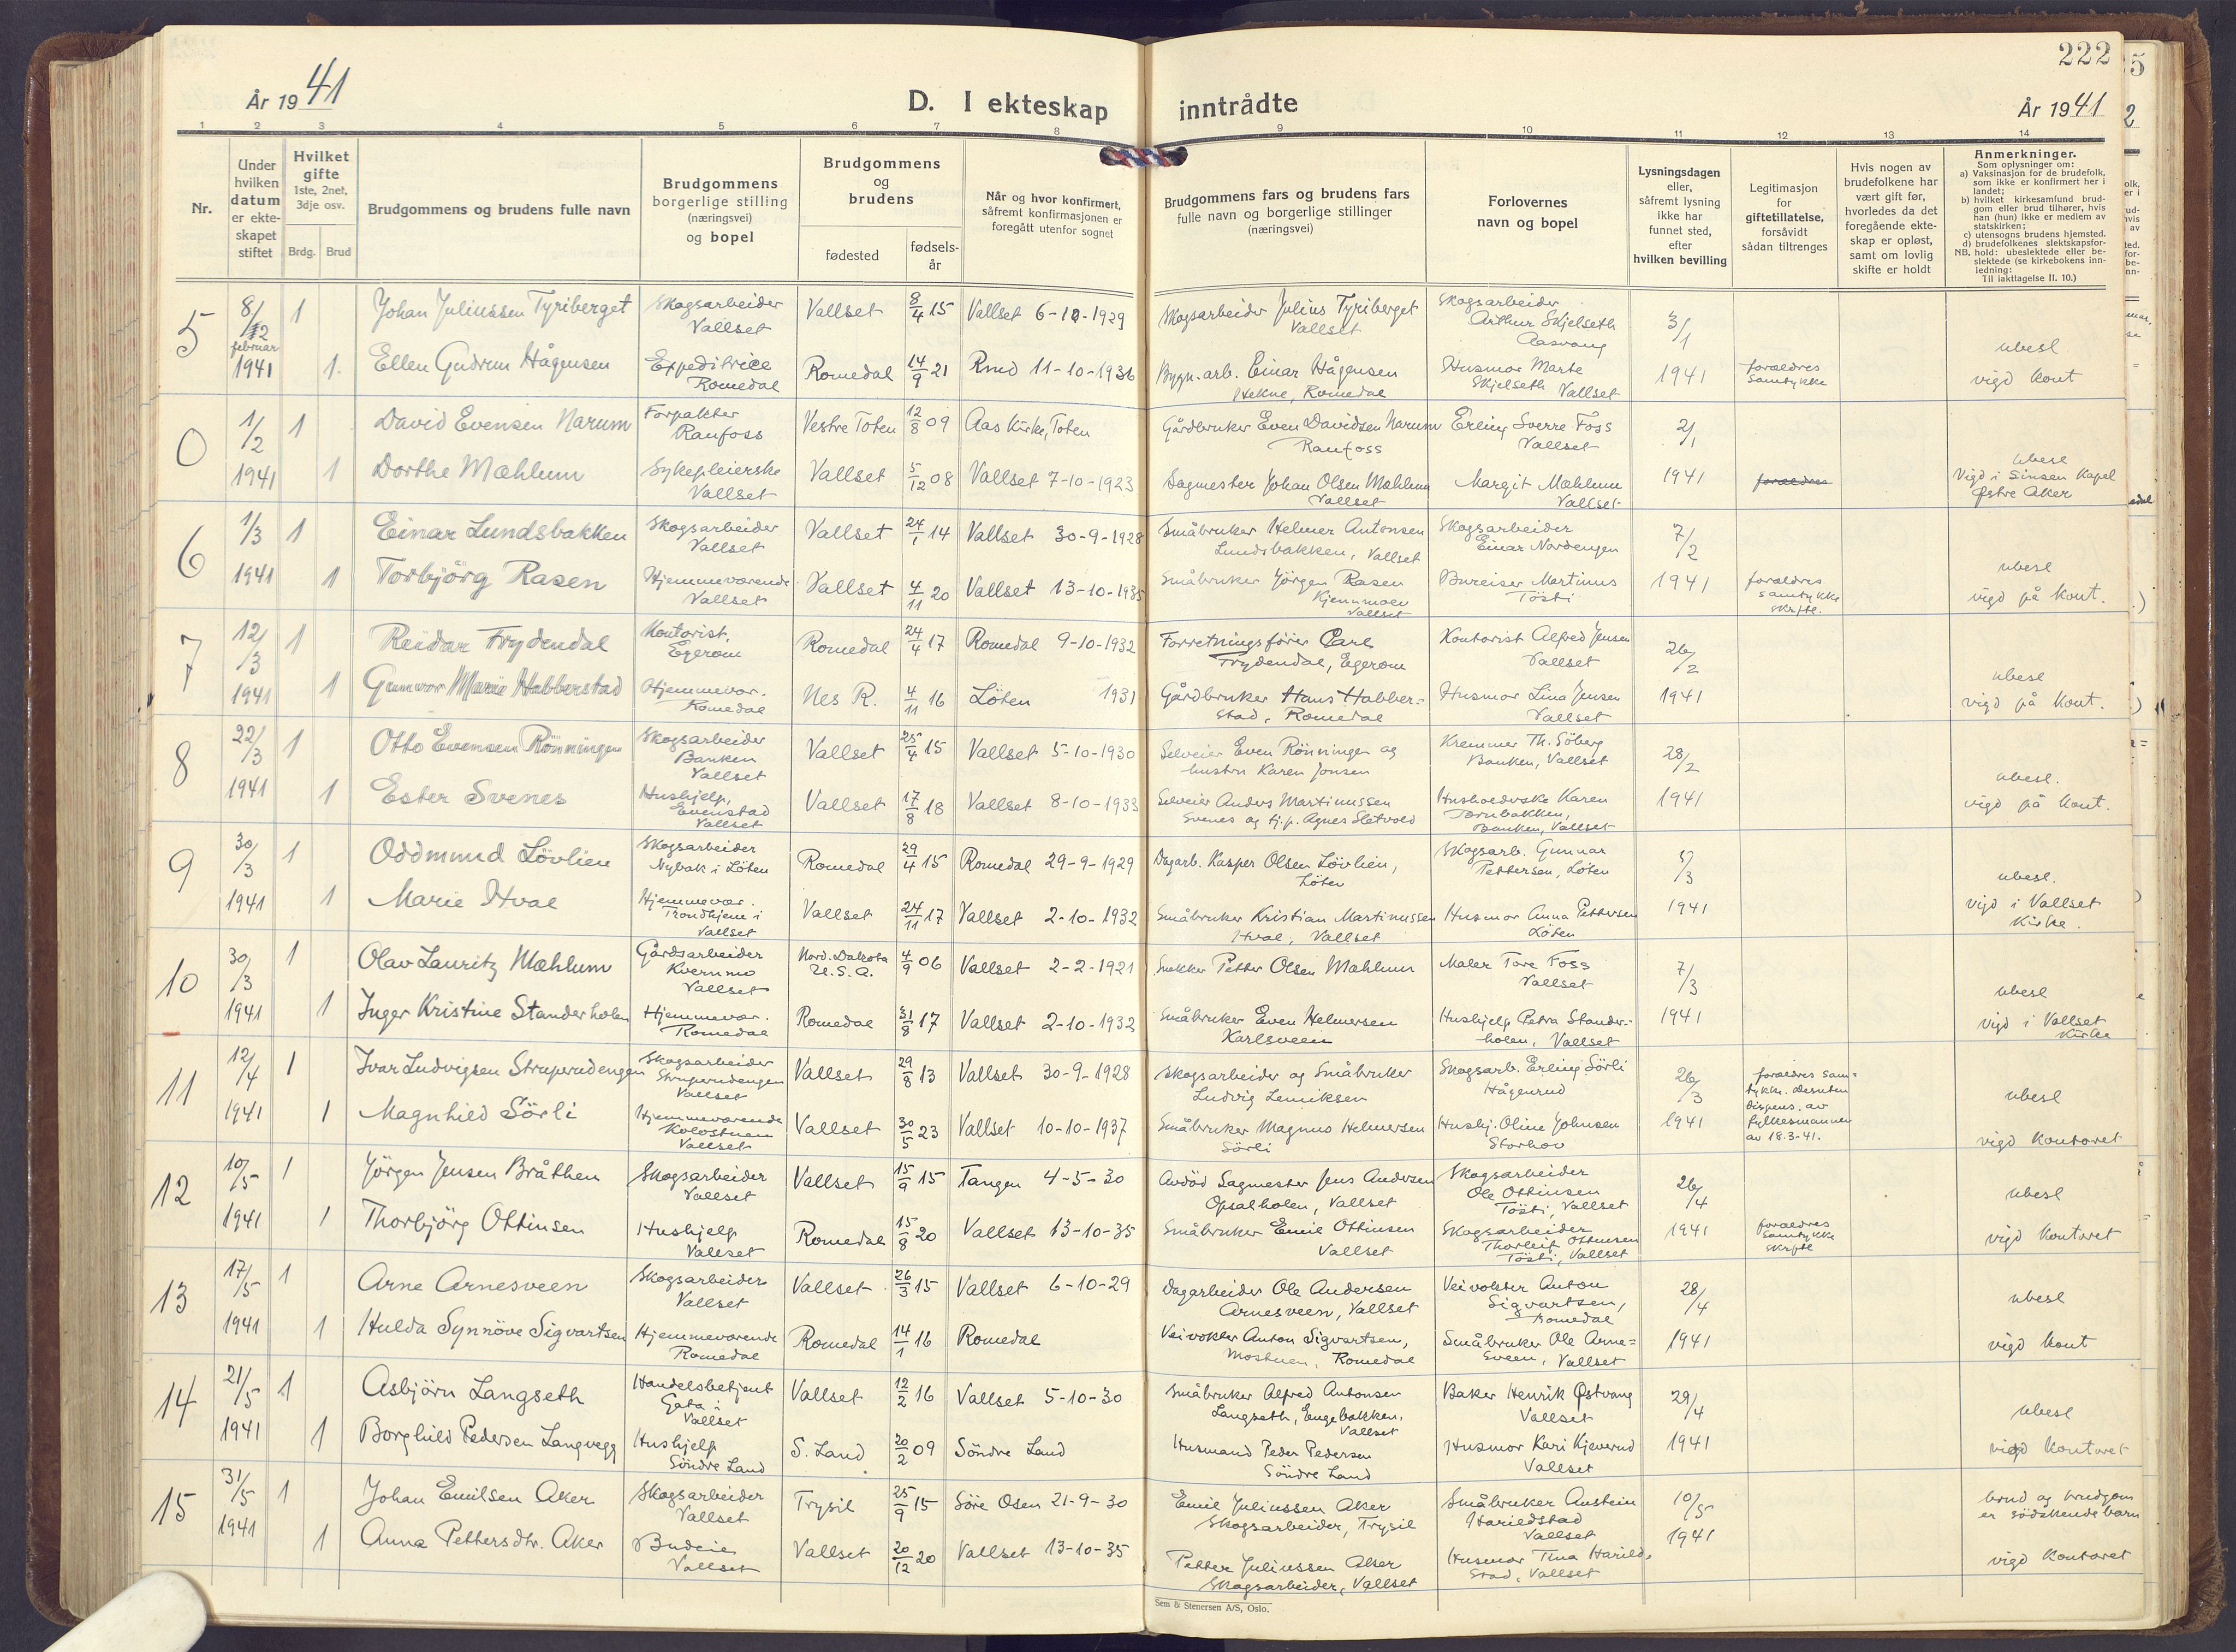 222
År 1941
D. I ekteskap inntrådte
År 1941
1 2 3 4 5 6 7 8 9 10 11 12 13 14
Nr.
Under hvilken datum er ekteskapet stiftet
Hvilket gifte 1ste, 2net, 3dje osv.
Brdg. Brud
Brudgommens og brudens fulle navn
Brudgommens borgerlige stilling (næringsvei) og bopel
Brudgommens og brudens
fødested
fødsels-år
Når og hvor konfirmert, såfremt konfirmasjonen er foregått utenfor sognet
Brudgommens fars og brudens fars fulle navn og borgerlige stillinger (næringsvei)
Forlovernes navn og bopel
Lysningsdagen eller, såfremt lysning ikke har funnet sted, efter hvilken bevilling
Legitimasjon for giftetillatelse, forsåvidt sådan tiltrenges
Hvis nogen av brudefolkene har vært gift før, hvorledes da det foregående ekteskap er opløst, samt om lovlig skifte er holdt
Anmerkninger.
Som oplysninger om:
a) Vaksinasjon for de brudefolk, som ikke er konfirmert her i landet;
b) hvilket kirkesamfund brudgom eller brud tilhører, hvis han (hun) ikke er medlem av statskirken;
c) utensogns brudens hjemsted.
d) brudefolkenes slektskapsforhold: ubeslektede eller beslektede (se kirkebokens innledning:
NB. Til iakttagelse II. 10.)
5 8/2 februar 1 Johan Juliussen Tyriberget Skogsarbeider Vallset Vallset 8/4 15 Vallset 6-10-1929 Skogsarbeider Julius Tyriberget Vallset Skogsarbeider Arthur Skjelseth Aasvang 3/1 ubesl
1941 1. Ellen Gudrun Hågensen Expeditrice Romedal Romedal 14/9 21 Rmd 11-10-1936 Bygn. arb. Einar Hågensen Stekne, Romedal Husmor Marte Skjelseth Vallset 1941 foreldres samtykke vigd kont
0 1/2 1 David Evensen Narum Forpakter Raufoss Vestre Toten 12/8 09 Aas Kirke, Toten Gårdbruker Even Davidsen Narum Raufoss Erling Sverre Foss Vallset 2/1 ubesl
1941 1 Dorthe Mæhlum Sykepleierske Vallset Vallset 5/12 08 Vallset 7-10-1923 Sagmester Johan Olsen Mæhlum Vallset Margit Mæhlum Vallset 1941 foreldres Vigd i Sinsen Kapel Østre Aker
6 1/3 1 Einar Lundsbakken Skogsarbeider Vallset Vallset 24/1 14 Vallset 30-9-1928 Småbruker Helmer Antonsen Lundsbakken, Vallset Skogsarbeider Einar Nordengen 7/2 ubesl
1941 1 Torbjörg Rasen Hjemmeværende Vallset Vallset 4/11 20 Vallset 13-10-1935 Småbruker Jörgen Rasen Kjemmoen Vallset Bureiser Martinus Tösti 1941 foreldres samtykke skrftl. vigd på kont.
7 12/3 1 Reidar Frydendal Kontorist. Egerom Romedal 24/4 17 Romedal 9-10-1932 Forretningsförer Carl Frydendal, Egerom Kontorist Alfred Jensen Vallset 26/2 ubesl
1941 1 Gunvor Marie Habberstad Hjemmevær. Romedal Nes R. 4/11 16 Löten 1931 Gårdbruker Hans Habber=stad, Romedal Husmor Lina Jensen Vallset 1941 vigd på kont.
8 22/3 1 Otto Evensen Rönningen Skogsarbeider Banken Vallset Vallset 25/4 15 Vallset 5-10-1930 Selveier Even Rönningen og hustru Karen Jonsen Kremmer Th. Söberg Banken, Vallset 28/2 ubesl.
1941 1 Ester Svenes Hushjelp, Evenstad Vallset Vallset 17/8 18 Vallset 8-10-1933 Selveier Anders Martinussen Svenes og tj.p. Agnes Sletvold Husholderske Karen Tornbakken, Banken, Vallset 1941 vigd på kont.
9 30/3 1 Oddmund Lövlien Skogsarbeider Nybak i Löten Romedal 29/4 15 Romedal 29-9-1929 Dagarb. Kasper Olsen Lövlien, Löten Skogsarb. Gunnar Pettersen, Löten 5/3 ubesl.
1941 1 Marie Hval Hjemmevær. Trondhjem i Vallset Vallset 24/11 17 Vallset 2-10-1932 Småbruker Kristian Martinussen Hval, Vallset Husmor Anna Pettersen Löten 1941 vigd i Vallset Kirke.
10 30/3 1 Olav Lauritz Mæhlum Gårdsarbeider Kvernmo Vallset Nord. Dakota U.S.A. 4/9 06 Vallset 2-2-1921 Snekker Petter Olsen Mæhlum Maler Tore Foss Vallset 7/3 ubesl
1941 1 Inger Kristine Standerholen Hjemmevær. Romedal Romedal 31/8 17 Vallset 2-10-1932 Småbruker Even Helmersen Karlsveen Hushjelp Petra Stander-holen, Vallset 1941 vigd i Vallset Kirke
11 12/4 1 Ivar Ludvigsen Struperudengen Skogsarbeider Struperudengen Vallset Vallset 29/8 13 Vallset 30-9-1928 Skogsarbeider og Småbruker Ludvig Lenriksen Skogsarb. Erling Sörli Hågenrud 26/3 foreldres sam=tykke. Desuten dispens. av fylkesmannen av 18.3-41. ubesl
1941 1 Magnhild Sörli Hjemmeværende Kolostuen Vallset Vallset 30/5 23 Vallset 10-10-1937 Småbruker Magnus Helmersen Sörli Hushj. Oline Johnsen Storhov 1941 vigd kontoret
12 10/5 1 Jörgen Jensen Bråthen Skogsarbeider Vallset Vallset 15/9 15 Tangen 4-5-30 Avdöd Sagmester Jens Andersen Opsalholen, Vallset Skogsarbeider Ole Ottinsen Tösti, Vallset 26/4 ubesl
1941 1 Thorbjörg Ottinsen Hushjelp Vallset Romedal 15/8 20 Vallset 13-10-35 Småbruker Emil Ottinsen Vallset Skogsarbeider Thorleif Ottinsen Tösti, Vallset 1941 foreldres samtykke skrftl vigd kontoret
13 17/5 1 Arne Arnesveen Skogsarbeider Vallset Vallset 26/3 15 Vallset 6-10-29 Dagarbeider Ole Andersen Arnesveen, Vallset Veivokter Anton Sigvartsen, Romedal 28/4 ubesl
1941 1 Hulda Synnöve Sigvartsen Hjemmeværende Romedal Romedal 14/1 16 Romedal Veivokter Anton Sigvartsen, Mostuen, Romedal Småbruker Ole Arne=sveen, Vallset 1941 vigd kont
14 21/5 1 Asbjörn Langseth Handelsbetjent Gata i Vallset Vallset 12/2 16 Vallset 5-10-30 Småbruker Alfred Antonsen Langseth, Engebakken, Vallset Baker Henrik Østvang Vallset 29/4 ubesl
1941 1 Borghild Pedersen Langvegg Hushjelp Söndre Land S. Land 20/2 09 Söndre Land Husmand Peder Pedersen Söndre Land Husmor Kari Kjeverud Vallset 1941 vigd kontoret
15 31/5 1 Johan Emilsen Aker Skogsarbeider Vallset Trysil 25/9 15 Söre Osen 21-9-30 Emil Juliussen Aker Skogsarbeider, Trysil Småbruker Austein Harildstad Vallset 10/5 brud og brudgom er södskendebarn
1941 1 Anna Pettersdtr. Aker Budeie Vallset Vallset 20/12 20 Vallset 13-10-35 Petter Juliussen Aker Skogsarbeider, Vallset Husmor Tina Harild=stad, Vallset 1941 vigd kontoret
Sem & Stenersen A/S, Oslo.